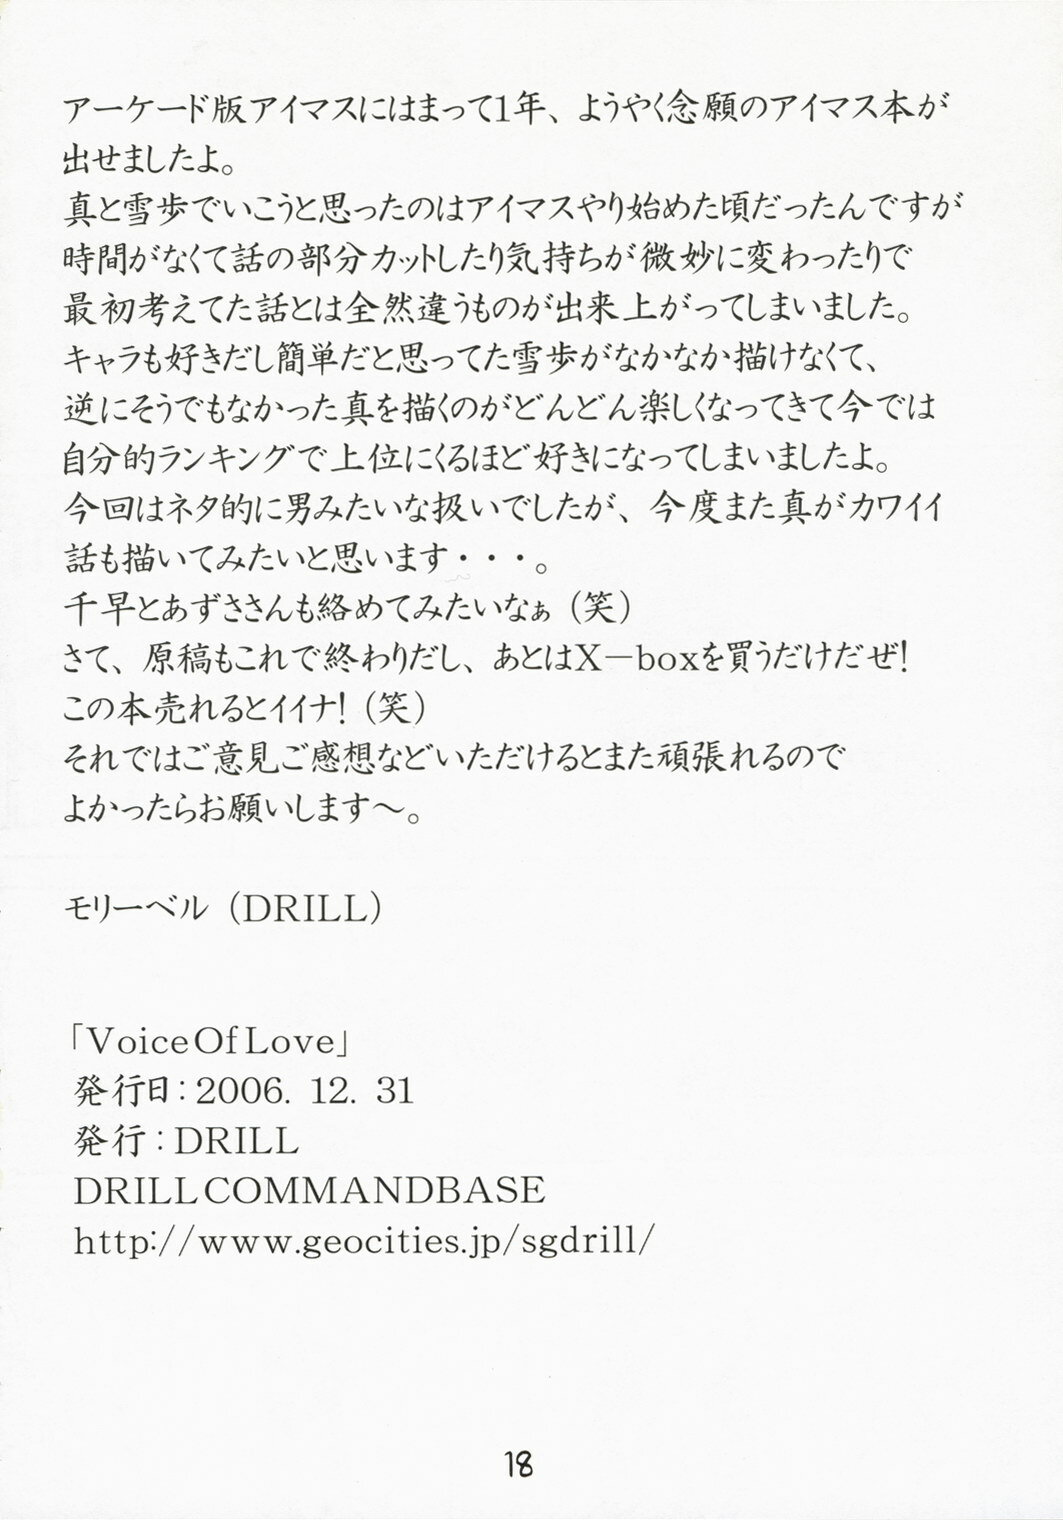 アーケード版アイマスにはまって1年、ようやく念願のアイマス本が
出せましたよ。
真と雪歩でいこうと思ったのはアイマスやり始めた頃だったんですが
時間がなくて話の部分カットしたり気持ちが微妙に変わったりで
最初考えてた話とは全然違うものが出来上がってしまいました。
キャラも好きだし簡単だと思ってた雪歩がなかなか描けなくて、
逆にそうでもなかった真を描くのがどんどん楽しくなってきて今では
自分的ランキングで上位にくるほど好きになってしまいましたよ。
今回はネタ的に男みたいな扱いでしたが、今度また真がカワイイ
話も描いてみたいと思います・・・。
千早とあずささんも絡めてみたいなぁ（笑）
さて、原稿もこれで終わりだし、あとはX－boxを買うだけだぜ！
この本売れるとイイナ！（笑）
それではご意見ご感想などいただけるとまた頑張れるので
よかったらお願いします～。
モリーベル（DRILL）
「VoiceOfLove」
発行日：2006．12．31
発行：DRILL
DRILLCOMMANDBASE
http://www.geocities.jp/sgdrill/
18